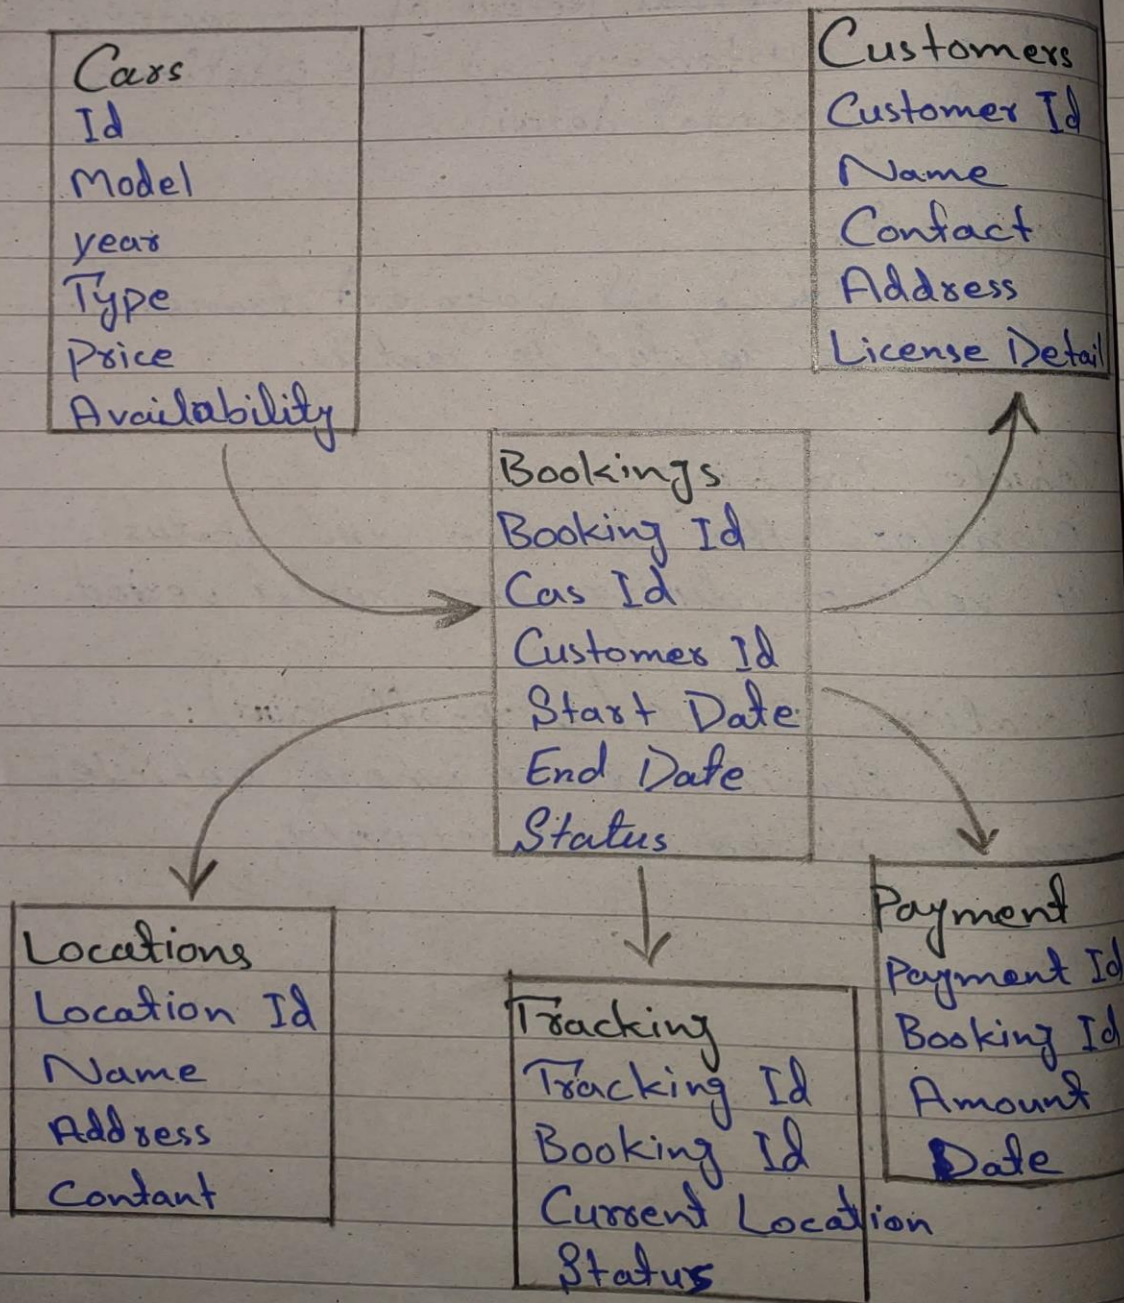 Cars
Id
Model
year
Type
Price
Availability
Customers
Customer Id
Name
Contact
Address
License Detail
Bookings
Booking Id
Cas Id
Customer Id
Start Date
End Date
Status
Locations
Location Id
Name
Address
Contant
Tracking
Tracking Id
Booking Id
Current Location
Status
Payment
Payment Id
Booking Id
Amount
Date